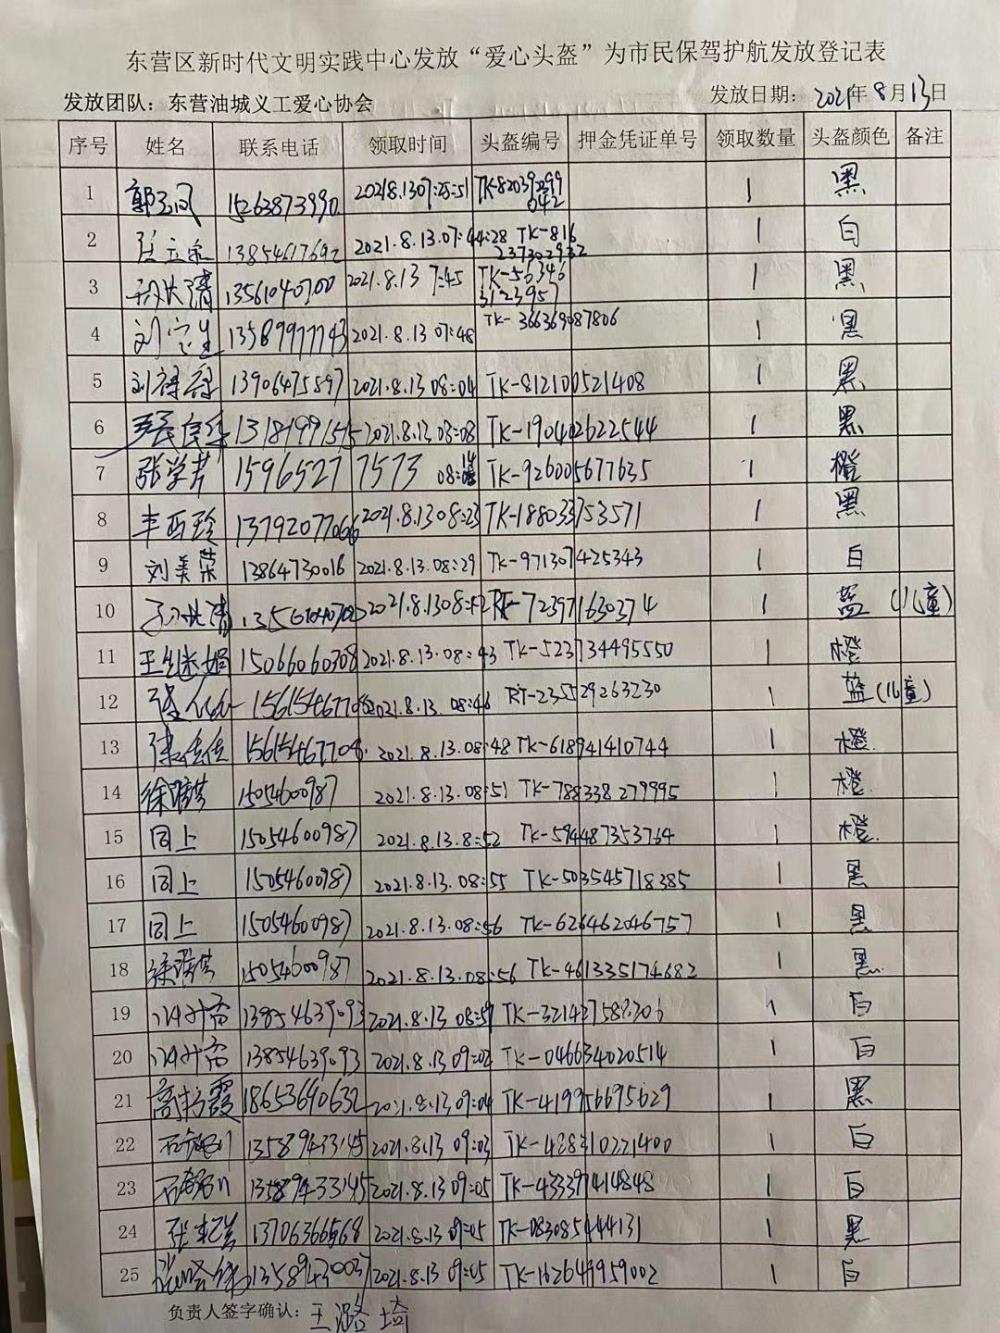 东营区新时代文明实践中心发放“爱心头盔”为市民保驾护航发放登记表
发放团队：东营油城义工爱心协会 发放日期：2021年8月13日
序号 姓名 联系电话 领取时间 头盔编号 押金凭证单号 领取数量 头盔颜色 备注
1 郭玉凤 15263873990. 2021.8.13 07:25:51 TK-82039299642 1 黑
2 13854617692 2021.8.13.07:44:28 TK-816237302932 1 白
3 2021.8.13 7:45 TK-563463123957 1 黑
4 刘宝生 13589977743 2021.8.13 07:48 TK-366369087806 1 黑
5 13906475897 2021.8.13 08:04 TK-812100521408 1 黑
6 2021.8.13 08:08 TK-190402622544 1 黑
7 张学芹 15965277573 08:14 TK-926005677635 1 橙
8 丰西珍 13792077066 2021.8.13 08:23 TK-188033753571 1 黑
9 刘美荣 13864730016 2021.8.13.08:29 TK-971307425343 1 白
10 2021.8.13 08:42 RT-723971630374 1 蓝（儿童）
11 王继娟 15066060308 2021.8.13.08:43 TK-523734495550 1 橙
12 2021.8.13.08:46 RT-235529263230 1 蓝（儿童）
13 15615467708. 2021.8.13.08:48 TK-618941410744 1 橙.
14 15054600987 2021.8.13.08:51 TK-788338279995 1 橙.
15 同上 15054600987 2021.8.13.8:52 TK-594487353764 1 橙.
16 同上 15054600987 2021.8.13.08:55 TK-503545718385 1 黑
17 同上 15054600987 2021.8.13.08:56 TK-626462046757 1 黑
18 15054600987 2021.8.13.08:56 TK-461335174682 1 黑.
19 13854639093 2021.8.13 08:59 1 白
20 13854639093 2021.8.13 09:02 TK-046634020514 1 白
21 高杨霞 18653640632 2021.8.13 09:04 TK-419956695629 1 黑
22 13589433145 2021.8.13 09:03 TK-428310221400 1 白
23 13589433145 2021.8.13 09:05 TK-433397414848 1 白
24 13706366568 2021.8.13 09:05 TK-083085444131 1 黑
25 13589430037 2021.8.13 09:05 TK-162649959002 1 白
负责人签字确认：王潞琦